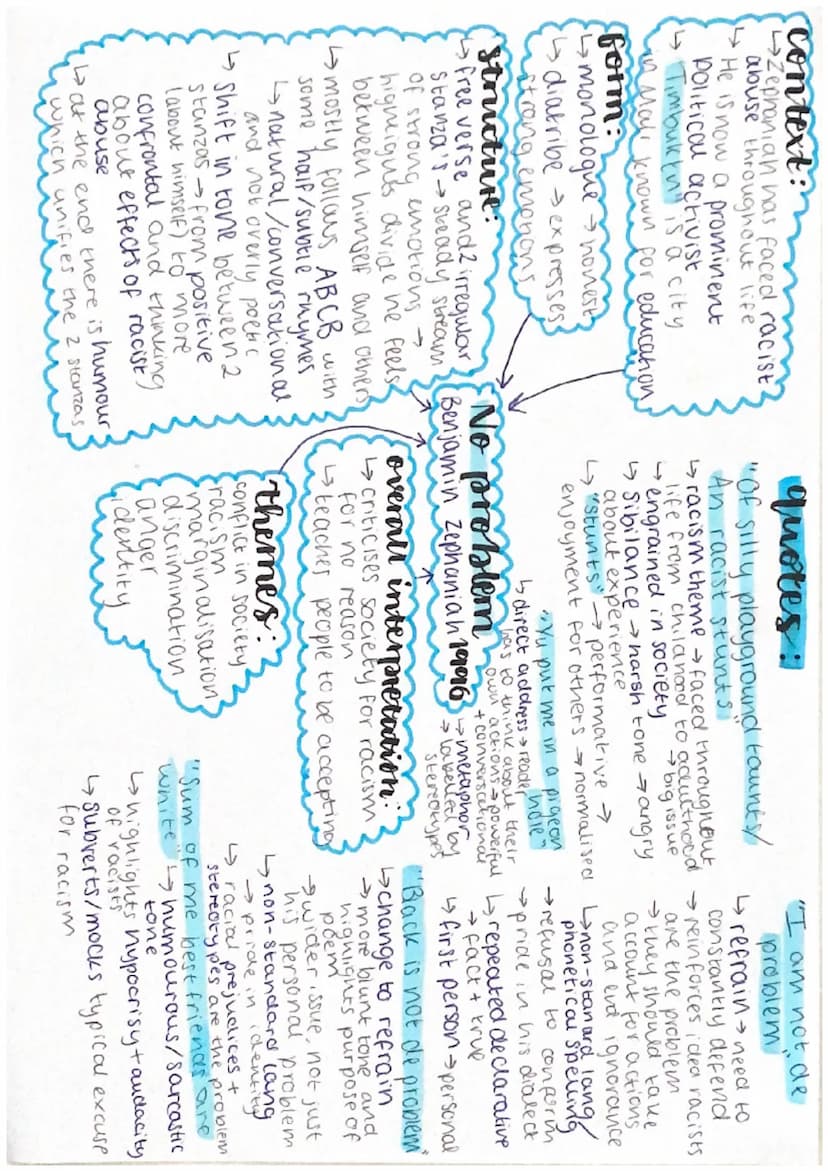 context:
↳ Zephaniah has faced racist
abuse throughout life
↳ He is now a prominent
political activist
↳ "Timbuktu" is a city
in Mali known for education
form:
↳ monologue → honest
↳ diatribe → expresses
strong emotions
structure:
↳ free verse and 2 irregular
stanza's → steady stream
of strong emotions →
highlights divide he feels
between himself and others
↳ mostly follows ABCB with
some half/subtle rhymes
↳ natural/conversational
and not overly poetic
↳ shift in tone between 2
stanzas → from positive
(about himself) to more
confrontal and thinking
about effects of racist
abuse
↳ at the end there is humour
which unifies the 2 stanzas
No problem
Benjamin Zephaniah 1996
overall interpretation:
↳ criticises society for racism
for no reason
↳ teaches people to be accepting
themes:
conflict in society
racism
marginalisation
discrimination
anger
identity
quotes:
"Of silly playground taunts/
An racist stunts"
↳ racism theme → faced throughout
life from childhood to adulthood
↳ engrained in society → big issue
↳ sibilance → harsh tone → angry
about experience
↳ "stunts" → performative →
enjoyment for others → normalised
"Yu put me in a pigeon
hole"
↳ direct address → reader
has to think about their
own actions → powerful
+ conversational
↳ metaphor
→ labelled by
stereotypes
"I am not de
problem"
↳ refrain → need to
constantly defend
→ reinforces idea racists
are the problem
→ they should take
account for actions
and end ignorance
↳ non-stanard lang/
phonetical spelling
→ refusal to conform
→ pride in his dialect
↳ repeated declarative
→ fact + true
↳ first person → personal
"Black is not de problem"
↳ change to refrain
→ more blunt tone and
highlights purpose of
poem
→ wider issue, not just
his personal problem
↳ non-standard lang
→ pride in identity
↳ racial prejudices +
stereotypes are the problem
"Sum of me best friends are
white"
↳ humourous/sarcastic
tone
↳ highlights hypocrisy + audacity
of racists
↳ subverts/mocks typical excuse
for racism